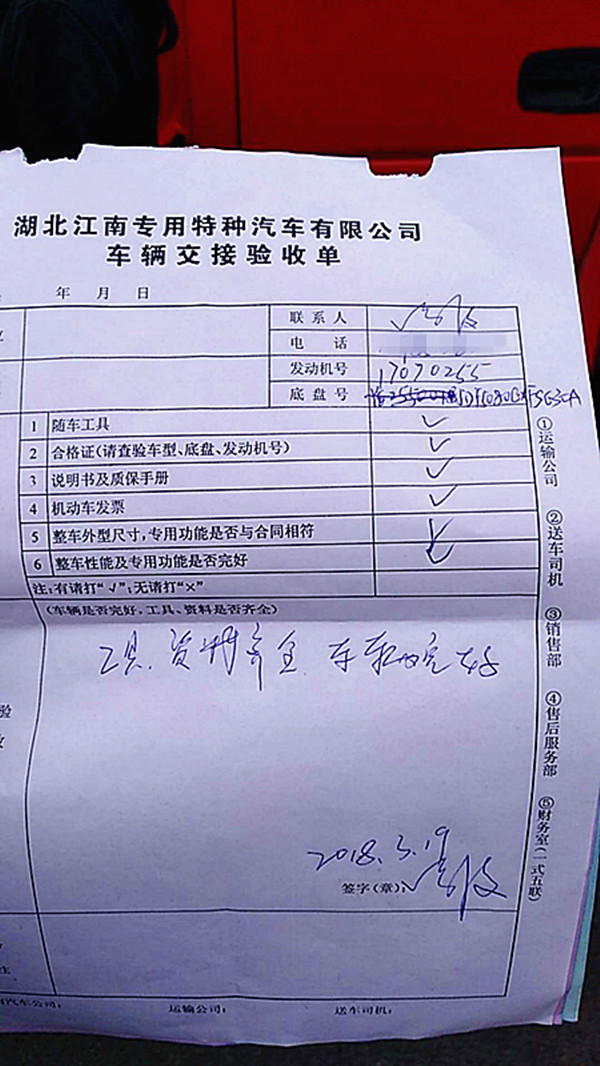 湖北江南专用特种汽车有限公司
车辆交接验收单
年 月 日
联系人
电 话
发动机号 17070255
底盘号
1 随车工具 ✓
2 合格证(请查验车型、底盘、发动机号) ✓
3 说明书及质保手册 ✓
4 机动车发票 ✓
5 整车外型尺寸,专用功能是否与合同相符
6 整车性能及专用功能是否完好 ✓
注:有请打“√”;无请打“×”
(车辆是否完好,工具、资料是否齐全)
工具、资料齐全 车辆完好
2018.3.19
签字(章):
运输公司: 送车司机:
①运输公司 ②送车司机 ③销售部 ④售后服务部 ⑤财务室(一式五联)